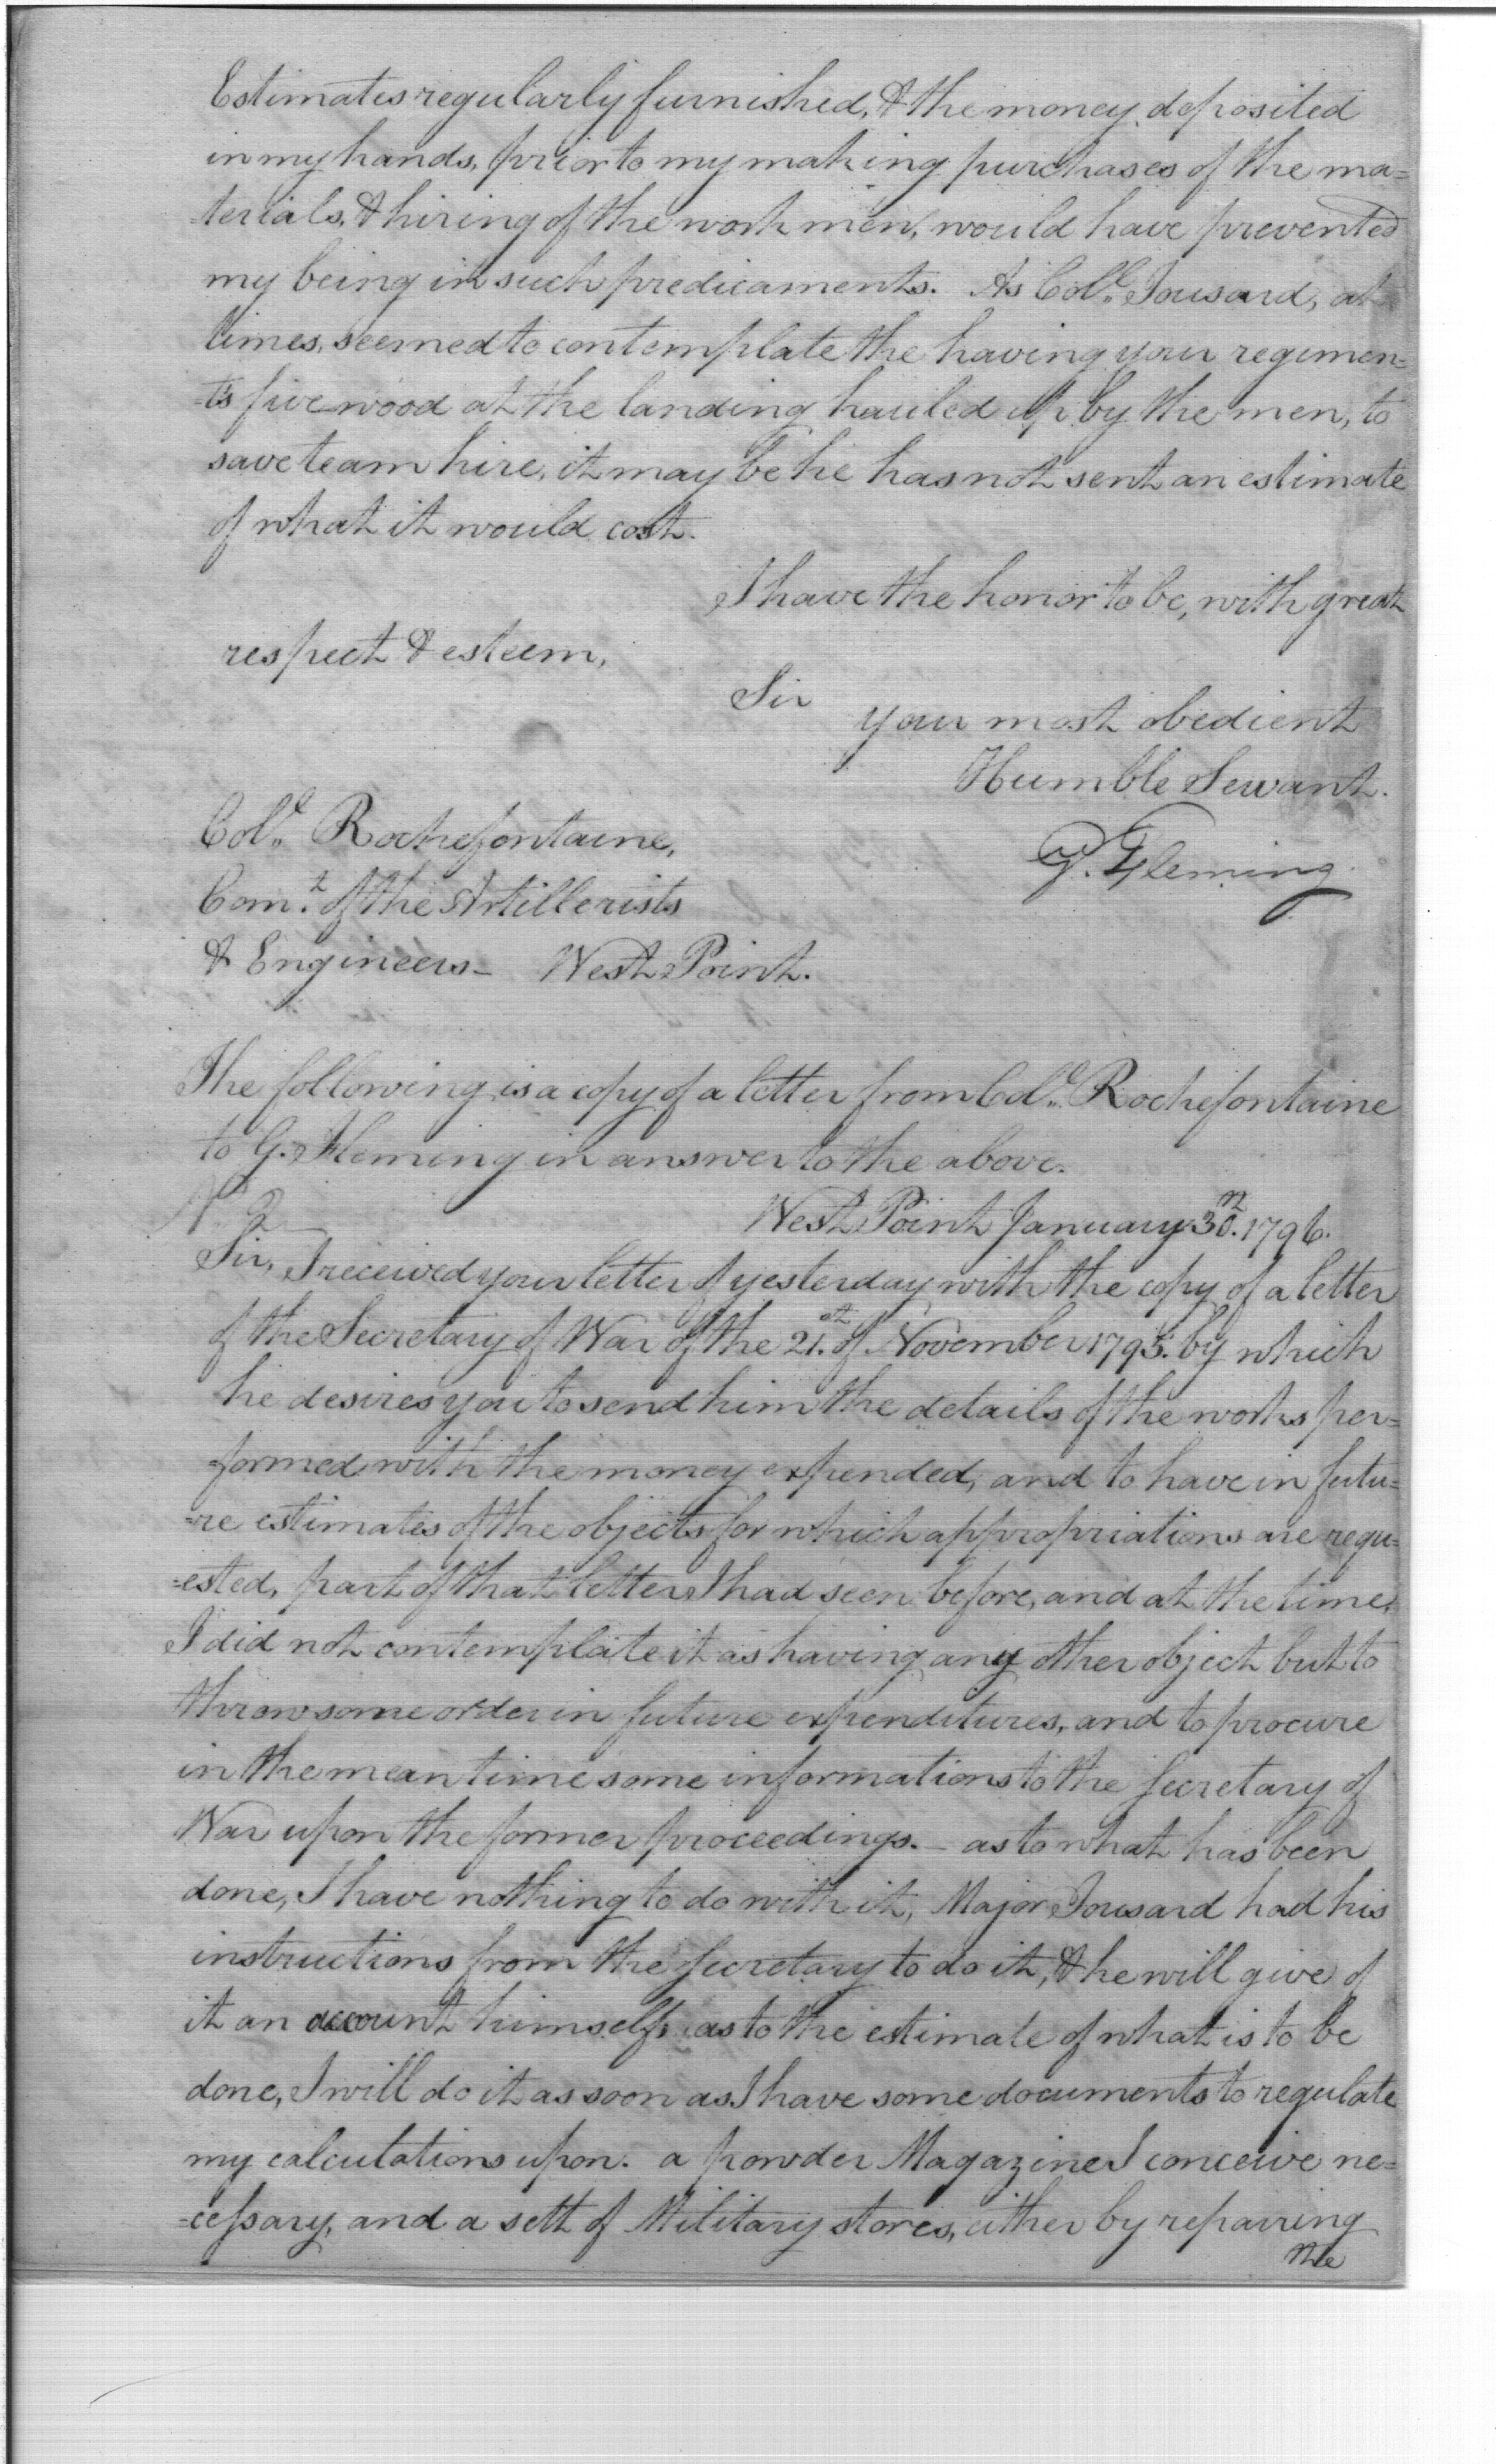 Estimates regularly furnished, & the money deposited
in my hands, prior to my making purchases of the ma=
=terials, & hiring of the work men, would have prevented
my being in such predicaments. As Coll. Tousard, at
times, seemed to contemplate the having your regimen=
=t's fire wood at the landing hauled up by the men, to
save team hire, it may be he has not sent an estimate
of what it would cost.
I have the honor to be, with great
respect & esteem,
Sir
your most obedient
Humble Servant.
G. Fleming
Coll. Rochefontaine,
Comt. of the Artillerists
& Engineers - West Point.
The following is a copy of a letter from Coll. Rochefontaine
to G. Fleming in answer to the above.
No. 2
West Point January 30th. 1796.
Sir, I received your letter of yesterday with the copy of a letter
of the Secretary of War of the 21st. of November 1795. by which
he desires you to send him the details of the works per=
=formed with the money expended, and to have in futu=
=re estimates of the objects for which appropriations are requ=
=ested, part of that letter I had seen before, and at the time,
I did not contemplate it as having any other object but to
throw some order in future expenditures, and to procure
in the mean time some informations to the Secretary of
War upon the former proceedings. - as to what has been
done, I have nothing to do with it, Major Tousard had his
instructions from the Secretary to do it, & he will give of
it an account himself, as to the estimate of what is to be
done, I will do it as soon as I have some documents to regulate
my calculations upon. a powder Magazine I conceive ne=
=cessary, and a sett of Military stores, either by repairing
the